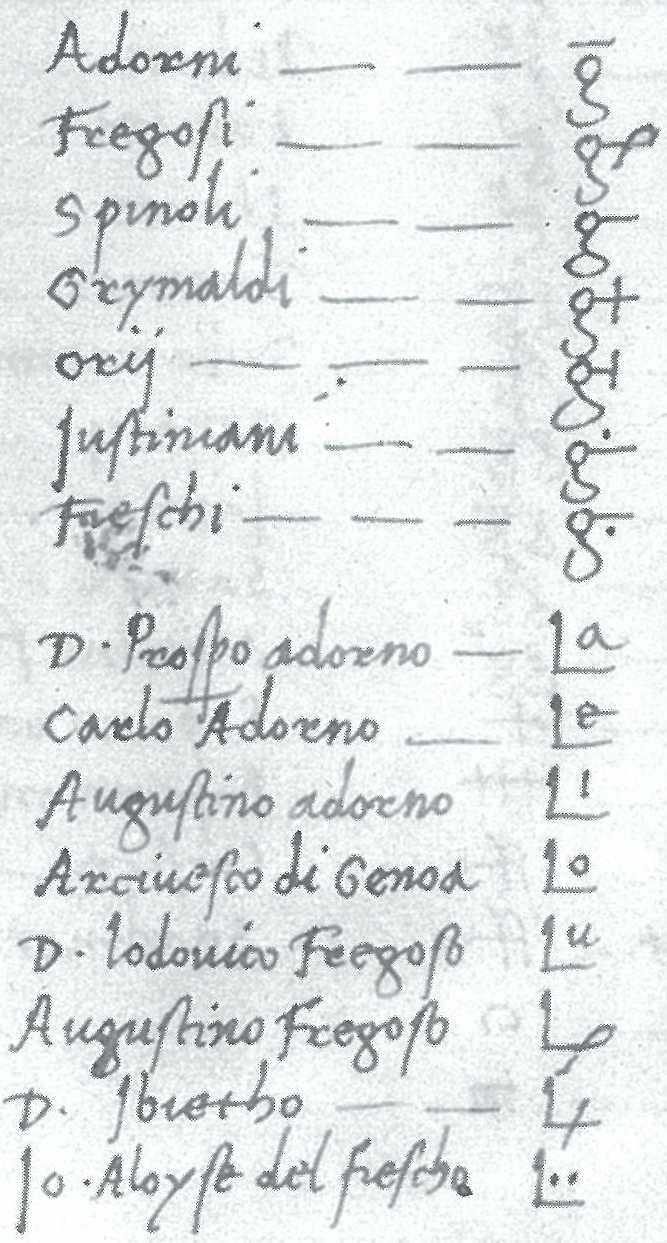 Adorni
Fregosi
Spinoli
Grymaldi
orij
Justiniani
Freschi
D. Prospo adorno
Carlo Adorno
Augustino adorno
Arciuesco di Genoa
D. lodouico Fregoso
Augustino Fregoso
D. Ibietho
Jo. Aloyse del fiescho